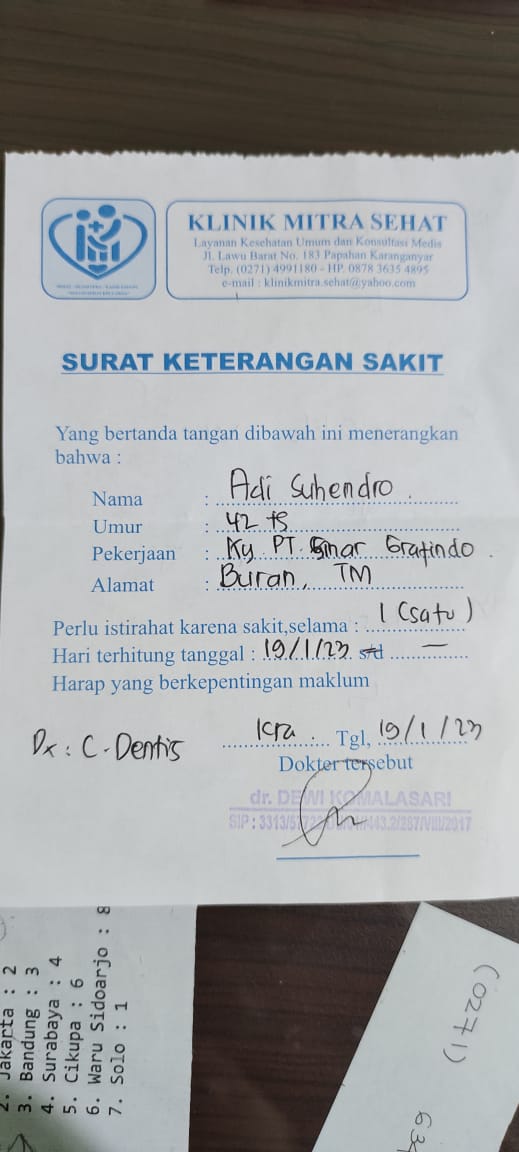 KLINIK MITRA SEHAT
Layanan Kesehatan Umum dan Konsultasi Medis
Jl. Lawu Barat No. 183 Papahan Karanganyar
Telp. (0271) 4991180 - HP. 0878 3635 4895
e-mail : klinikmitra.sehat@yahoo.com
SURAT KETERANGAN SAKIT
Yang bertanda tangan dibawah ini menerangkan
bahwa :
Nama : Adi Suhendro
Umur : 42 th
Pekerjaan : Ky PT. Sinar Grafindo
Alamat : Buran, TM
Perlu istirahat karena sakit,selama : 1 (satu)
Hari terhitung tanggal : 19/1/23 s/d —
Harap yang berkepentingan maklum
Dx : C. Dentis
Kra. Tgl, 19/1/23
Dokter tersebut
dr. DEWI KOMALASARI
2. Jakarta : 2
3. Bandung : 3
4. Surabaya : 4
5. Cikupa : 6
6. Waru Sidoarjo : 8
7. Solo : 1
(0271)